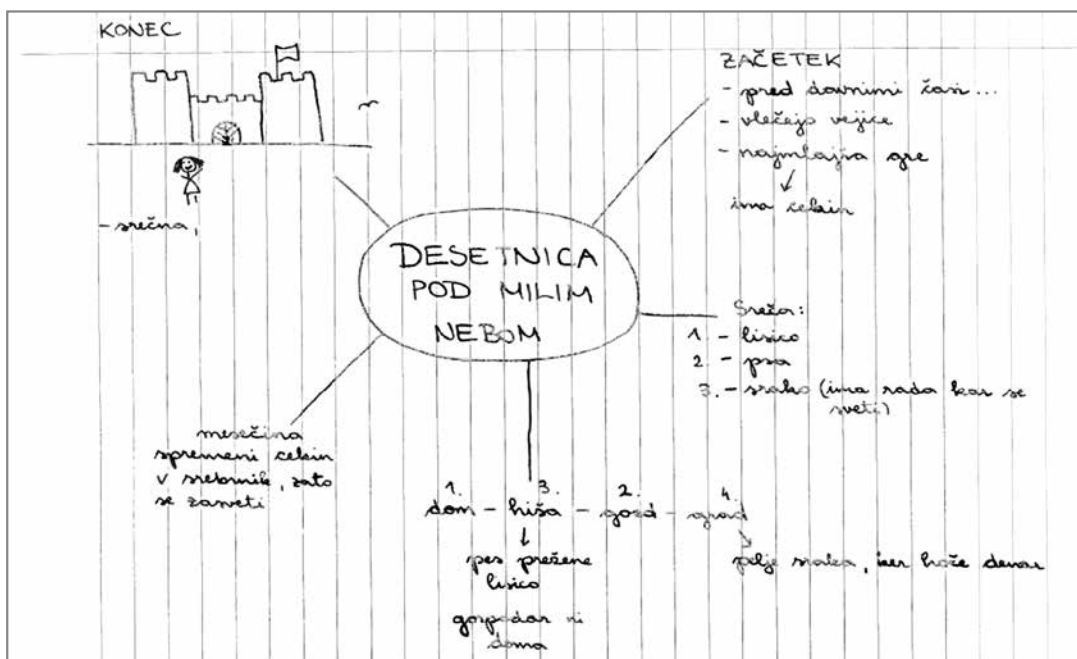 KONEC
- srečna,
ZAČETEK
- pred davnimi časi ...
- vlečejo vejice
- najmlajša gre
ima cekin
DESETNICA
POD MILIM
NEBOM
Sreča:
1 - lisico
2. - psa
3. - srako (ima rada kar se
sveti)
mesečina
spremeni cekin
v srebrnik, zato
se zasveti
1. 3. 2. 4.
dom - hiša - gozd - grad
pes prežene
lisico
gospodar ni
doma
pelje sraka, ker hoče denar